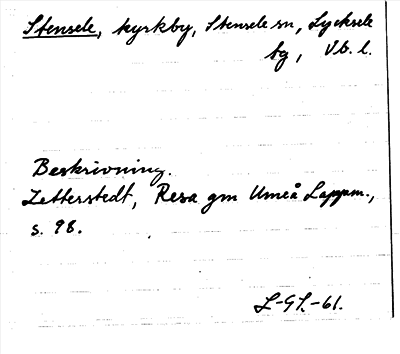 Stensele, kyrkby, Stensele sn, Lycksele
tg, Vb. l.
Beskrivning.
Zetterstedt, Resa gm Umeå Lappm.,
s. 98.
L-GL-61.